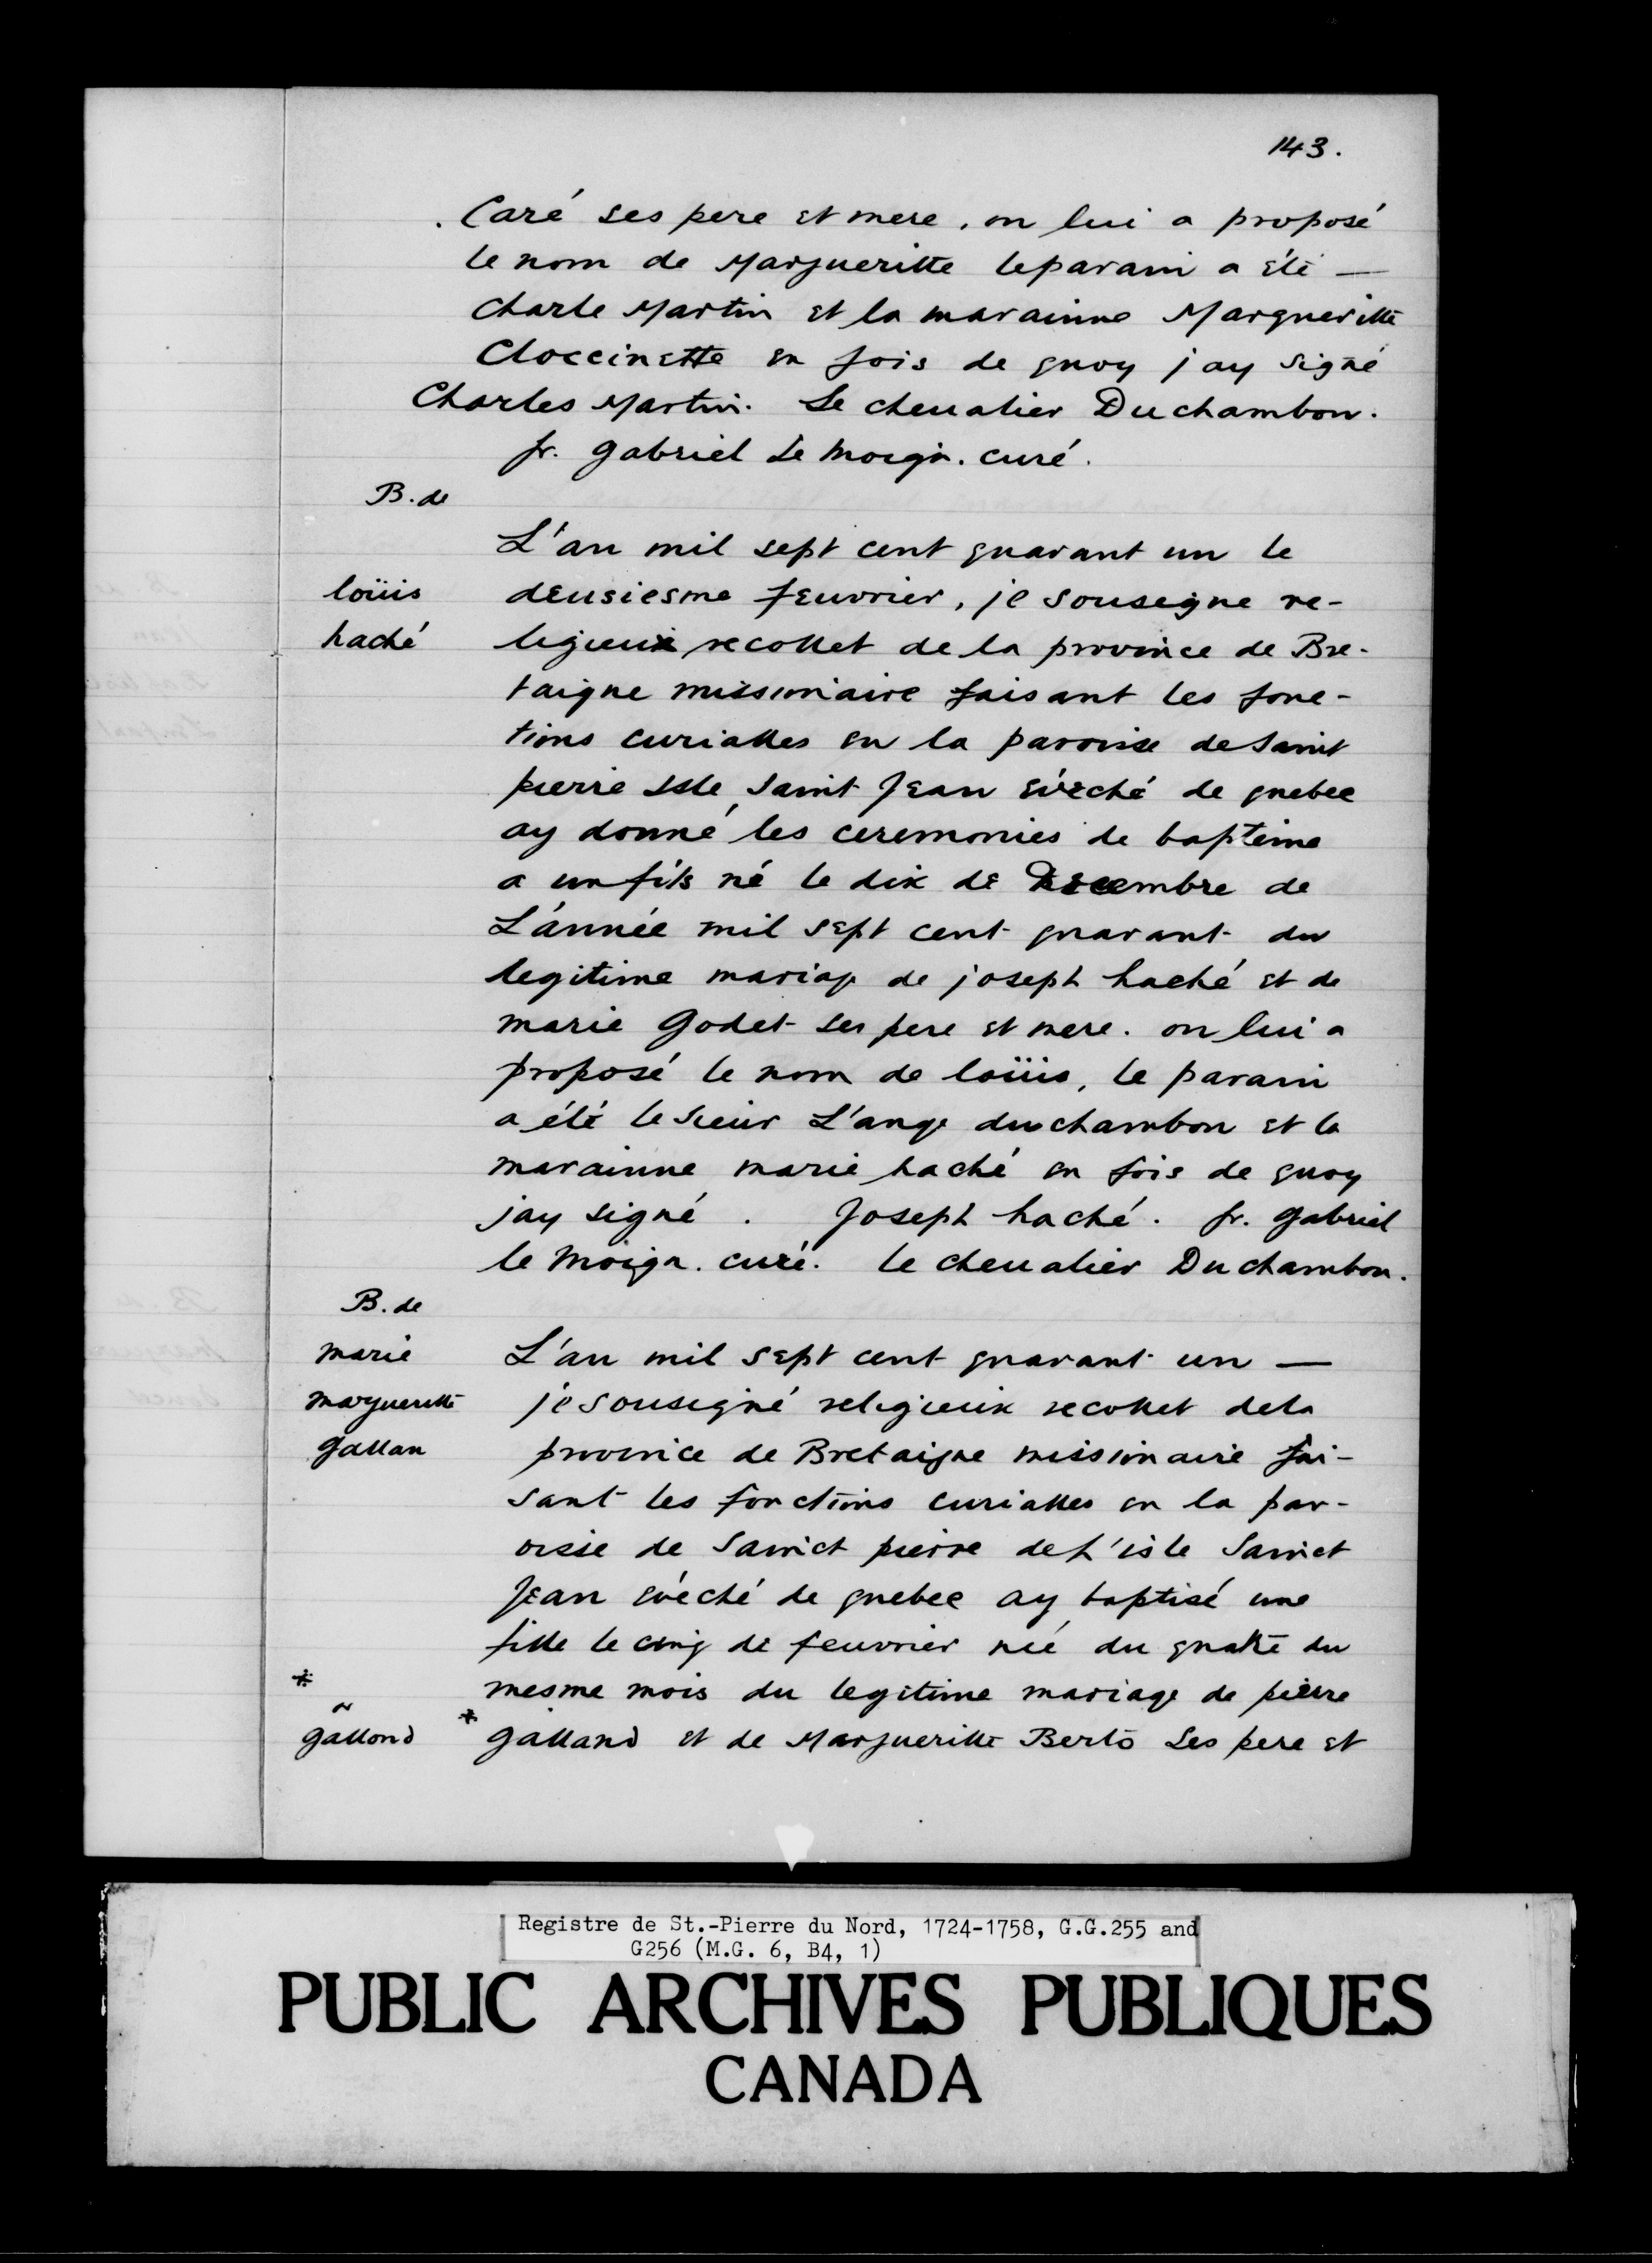 143.
. Caré ses pere et mere, on lui a proposé
le nom de Margueritte leparain a été —
Charle Martin et la marainne Margueritte
Cloccinette en fois de quoy j ay signé
Charles Martin. Le cheualier Duchambon.
fr. gabriel Le moign. curé.
B. de
L'an mil sept cent quarant un le
loüis deusiesme feuvrier, je sousigne re-
haché ligieuix recollet de la province de Bre-
taigne missionaire faisant les fonc-
tions curialles en la paroisse de Saint
pierre Isle Saint Jean évêché de quebec
ay donné les ceremonies de baptême
a un fils né le dix de Decembre de
L'année mil sept cent quarant du
legitime mariage de joseph haché et de
marie Godet ses pere et mere. on lui a
proposé le nom de loüis, le parain
a été le sieur L'ange duchambon et la
marainne marie haché en fois de quoy
jay signé . Joseph haché. fr. gabriel
le moign. curé. le cheualier Duchambon.
B. de
marie L'an mil sept cent quarant un —
margueritte je sousigné religieuix recollet dela
gallan province de Bretaigne missionaire fai-
sant les fonctions curialles en la par-
oisse de Sainct pierre de L'isle Sainct
Jean évéché de quebec ay baptisé une
fille le cinq de feuvrier née du quatre du
* mesme mois du legitime mariage de pierre
gallond * galland et de Margueritte Berto ses pere et
Registre de St.-Pierre du Nord, 1724-1758, G.G.255 and
G256 (M.G. 6, B4, 1)
PUBLIC ARCHIVES PUBLIQUES
CANADA